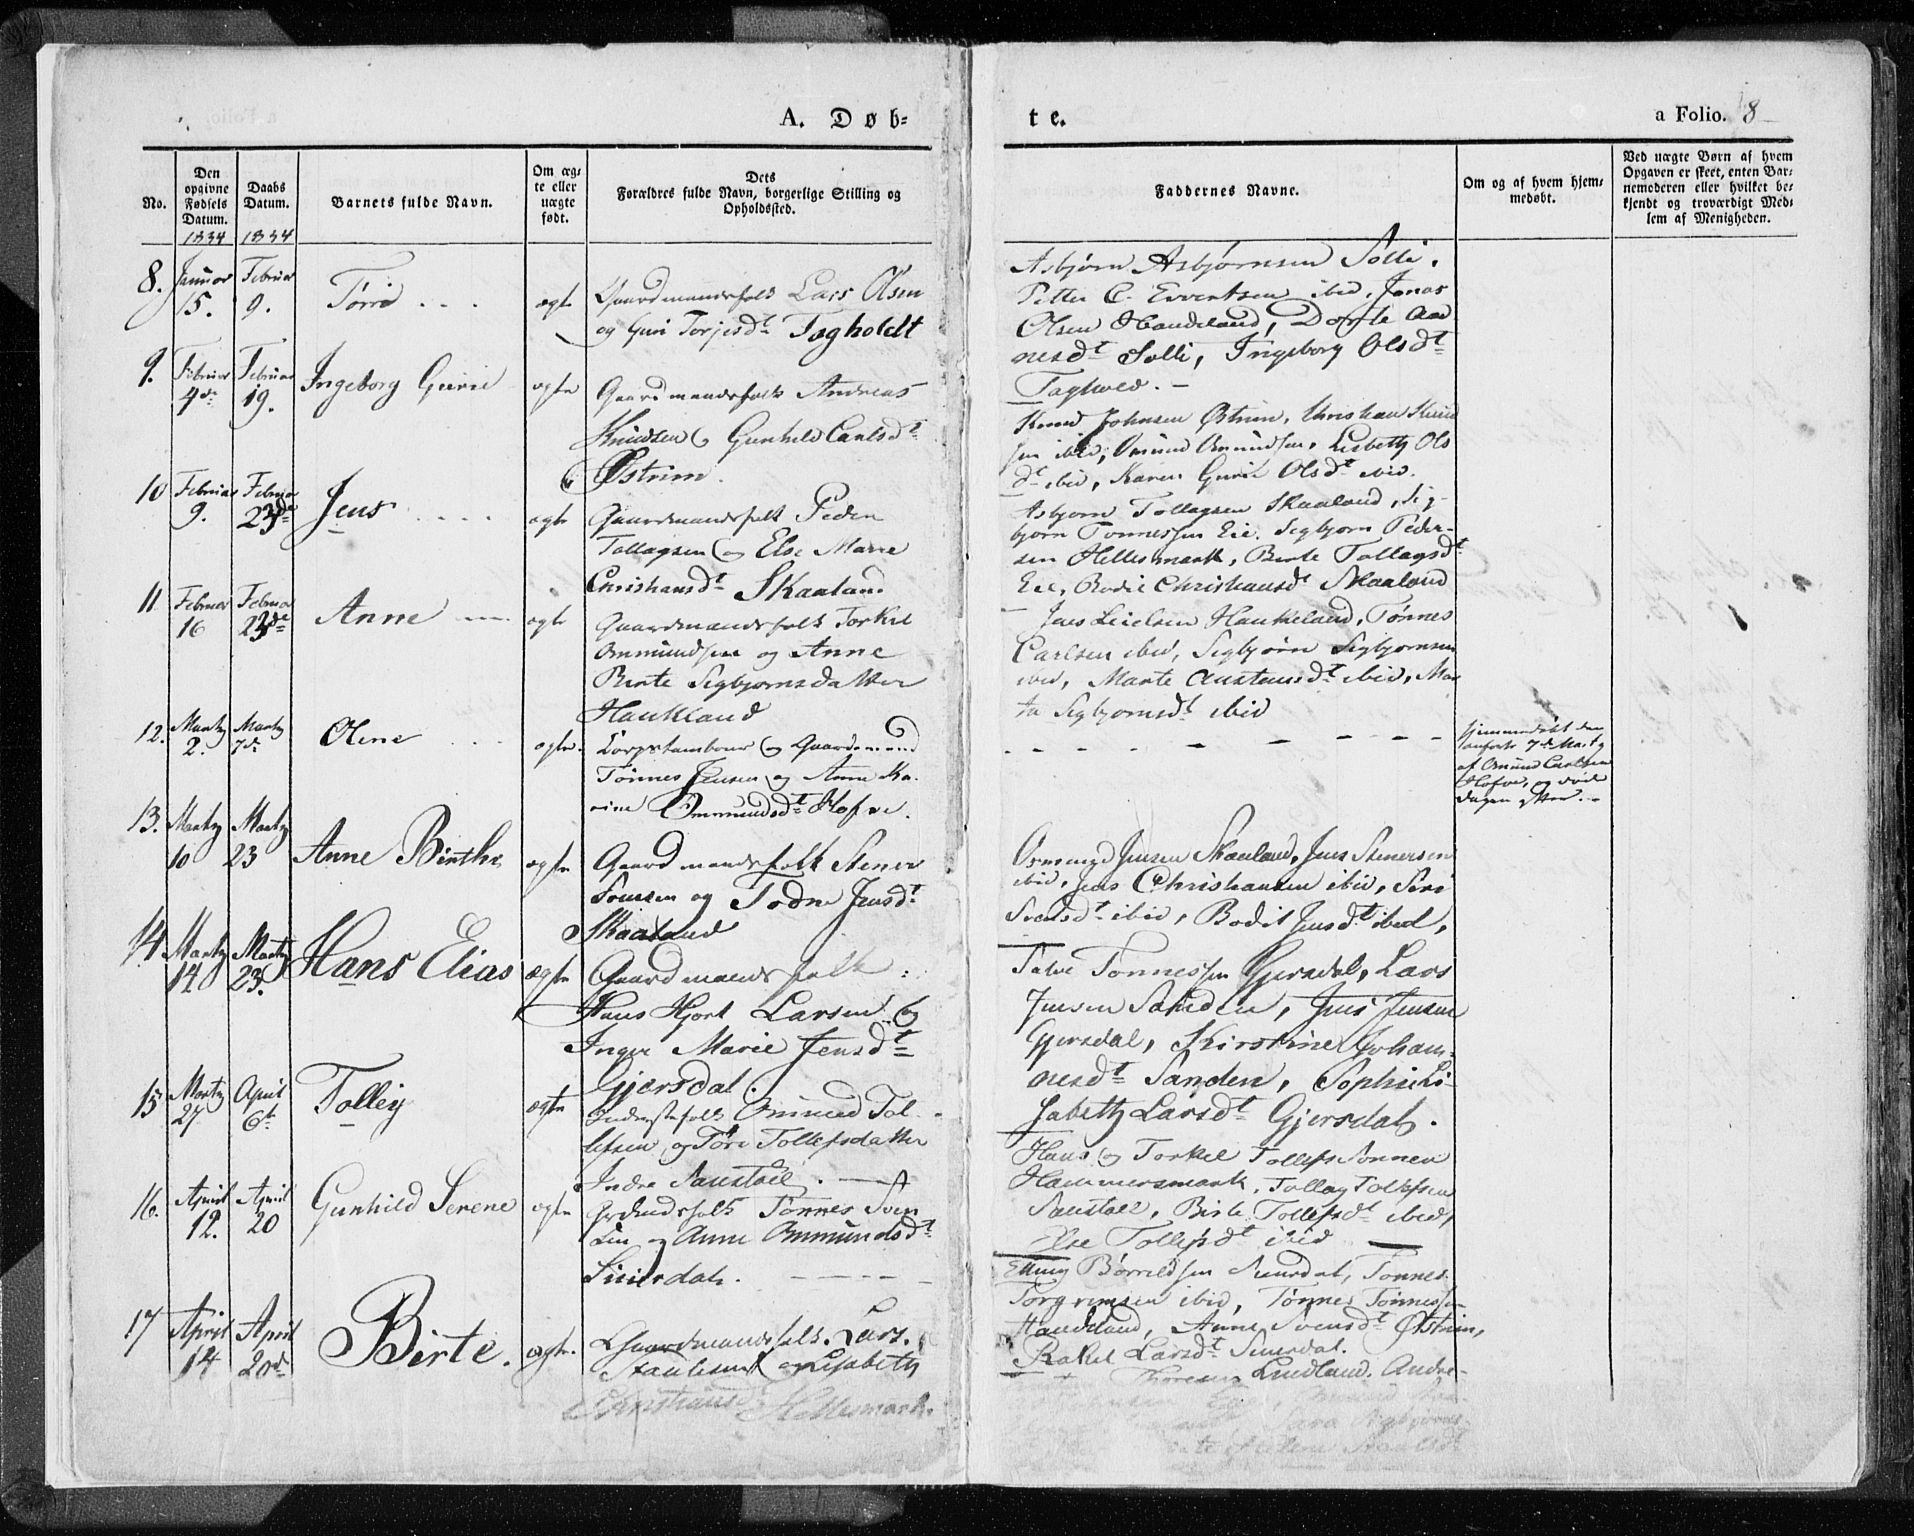 A. Døb=
te.
a Folio. 8
No.
Den opgivne Fødsels Datum.
1834
Daabs Datum.
1834
Barnets fulde Navn.
Om æg-te eller uægte født.
Dets
Forældres fulde Navn, borgerlige Stilling og
Opholdssted.
Faddernes Navne.
Om og af hvem hjem=
medøbt.
Ved uægte Børn af hvem
Opgaven er skeet, enten Bar=
nemoderen eller hvilket be=
kjendt og troværdigt Med=
lem af Menigheden.
8. Januar 15. Februar 9.
ægte Gaardmandsfolk Lars Olsen
og Guri Torjesdt Tagholdt
Asbjørn Asbjørnsen Solli,
Petter C. Evertsen ibid, Jonas
Olsen Haudeland, Dorte
nesdt Solli, Ingeborg Olsdt
Taghold. –
9. Februar 4de Februar 19. Ingeborg Gurie
ægte Gaardmandsfolk Andreas
Knudsen og Gunhild Carlsdt
Østrim.
Knud Johnsen Østrim, Christian Knud
sen ibid, Omund Omundsen, Lisbeth Ols
dt ibid, Karen Gurie Olsdt ibid.
10 Februar 9. Februar 23de Jens
ægte Gaardmandsfolk Peder
Tollagsen og Else Marie
Christiansdt Skaaland
Asbjørn Tollagsen Skaaland, Sig-
bjørn Tønnessen Eie, Segbjørn Peder-
sen Hellesmark, Birte Tollagsdt
Eie, Bodil Christiansdt Skaaland
11 Februar 16 Februar 23de Anne
ægte Gaardmandsfolk Torkel
Ommundsen og Anne
Birte Segbjørnsdatter
Haukland
Jens Haukeland, Tønnes
Carlsen ibid, Segbjørn Segbjørnsen
ibid, Marte Austensdt ibid, Mar
ta Segbjørnsdt ibid
12. Martz 2. Martz 7de Olene
ægte. Corpstambour og Gaardmand
Tønnes Jensen og Anne Ka-
rine Ommundsdt Hofve.
hjemmedøbt den
anførte 7de Martz
af Omund Carlsen
Hofve, og døde
dagen efter. –
13. Martz 10 Martz 23 Anne Birthe
ægte Gaardmandsfolk Stener
og Todne Jensdt
Skaaland
Ommund Jensen Skaaland, Jens Stenersen
ibid, Jens Christiansen ibid, Siri
Svensdt ibid, Bodil Jensdt ibid,
14 Martz 14 Martz 23. Hans Elias
ægte Gaardmandsfolk:
Hans Hjort Larsen og
Inger Marie Jensdt
Gjersdal.
Salve Tønnessen Gjersdal, Lars
Jensen Sanden, Jens Jensen
Gjersdal, Kirstine Johan-
nesdt Sanden, Sophie Li-
sabeth Larsdt Gjersdal.
15 Martz 27 April 6te Tolley
ægte Inderstefolk Ommund Tol-
lefsen og Tore Tollefsdatter
Indre Saustøel.
Hans og Torkel Tollefs Sønner
Hammersmark, Tollag Tollefsen
Saustøel, Birte Tollefsdt ibid,
Else Tollefsdt ibid
16. April 12. April 20 Gunhild Serene
ægte Tønnes Sven
sen og Anne Ommundsdt
Siuersdal.
Elling Børrildsen Siuersdal, Tønnes
Torgrimsen ibid, Tønnes Tønnessen
Haudeland, Anne Svensdt Østrim,
Rakel Larsdt Siuersdal.
17 April 14 April 20de Birte.
ægte. Gaardmandsfolk Lars
og Lisabeth
Christiansdt Hellesmark.
Lindland, Andre-
Sara Segbjørns-